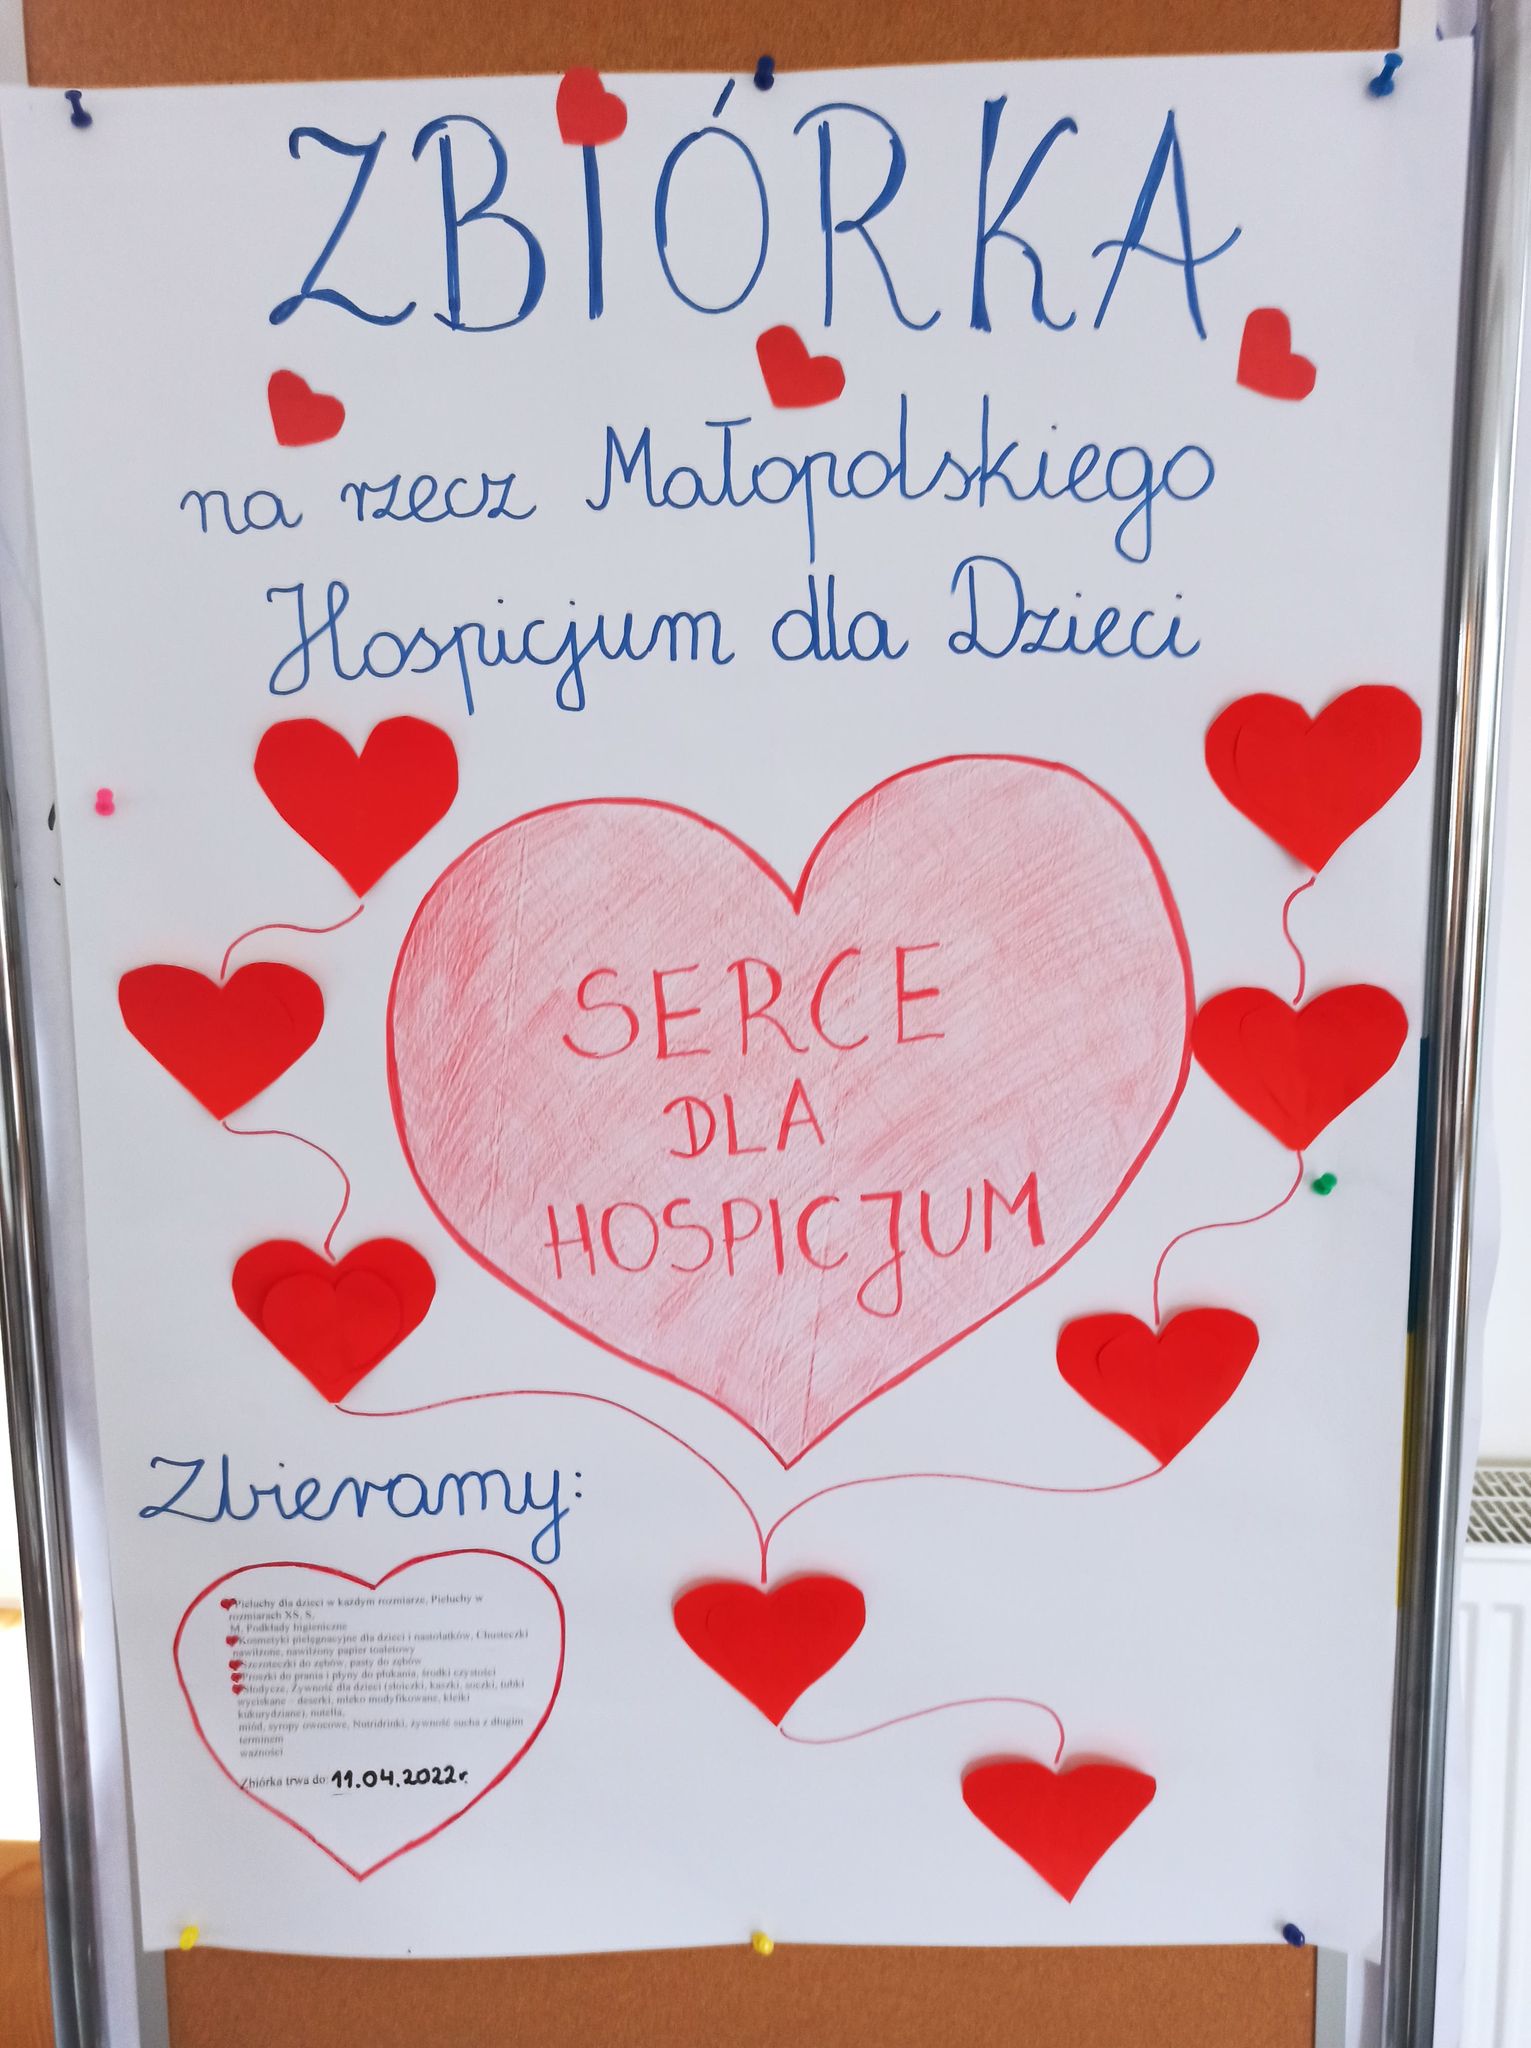 ZBIÓRKA
na rzecz Małopolskiego
Hospicjum dla Dzieci
SERCE
DLA
HOSPICJUM
Zbieramy:
Pieluchy dla dzieci w każdym rozmiarze, Pieluchy w
rozmiarach XS, S,
M, Podkłady higieniczne
Kosmetyki pielęgnacyjne dla dzieci i nastolatków, Chusteczki
nawilżone, nawilżony papier toaletowy
Szczoteczki do zębów, pasty do zębów
Proszki do prania i płyny do płukania, środki czystości
Słodycze, Żywność dla dzieci (słoiczki, kaszki, soczki, tubki
wyciskane – deserki, mleko modyfikowane, kleiki
kukurydziane), nutella,
miód, syropy owocowe, Nutridrinki, żywność sucha z długim
terminem
ważności
Zbiórka trwa do: 11.04.2022r.